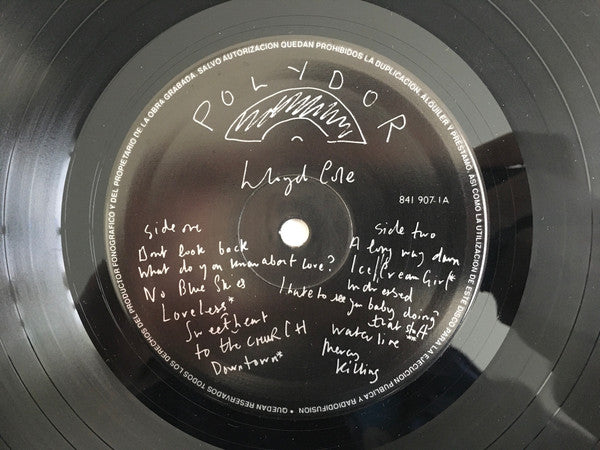 QUEDAN RESERVADOS TODOS LOS DERECHOS DEL PRODUCTOR FONOGRAFICO Y DEL PROPIETARIO DE LA OBRA GRABADA. SALVO AUTORIZACION QUEDAN PROHIBIDOS LA DUPLICACION, ALQUILER Y PRESTAMO, ASI COMO LA UTILIZACION DE ESTE DISCO PARA LA EJECUCION PUBLICA Y RADIODIFUSION •
POLYDOR
Lloyd Cole
841 907-1A
side one
Dont look back
What do you know about love?
No Blue Skies
Loveless*
Sweetheart
to the CHURCH
Downtown*
side two
A long way down
Ice Cream Girl*
undressed
I hate to see you baby doing
that stuff
waterline
Mercy
Killing